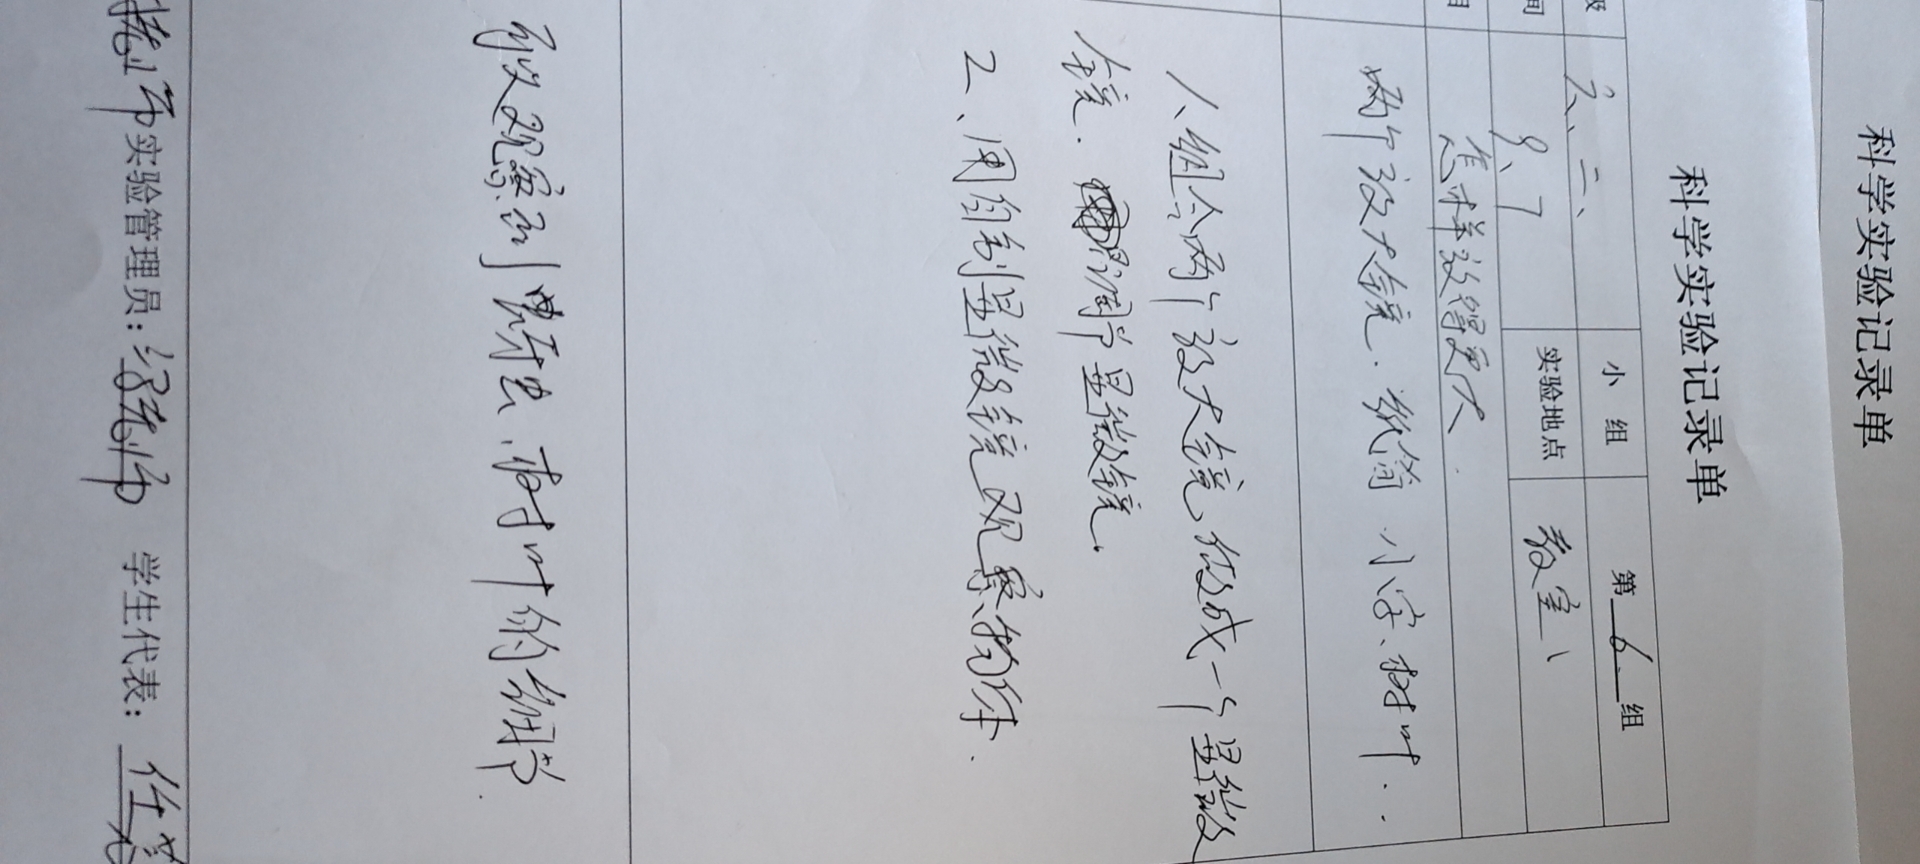 科学实验记录单
科学实验记录单
级 六、二、 小 组 第 6 组
间 9、7 实验地点 教室
目 怎样放得更大.
两个放大镜.纸筒 小字、树叶...
1、组合两个放大镜,做成一个显微
镜.调节显微镜.
2、用自制显微镜观察物体.
可以观察到 树叶的细节.
实验管理员: 学生代表: 任